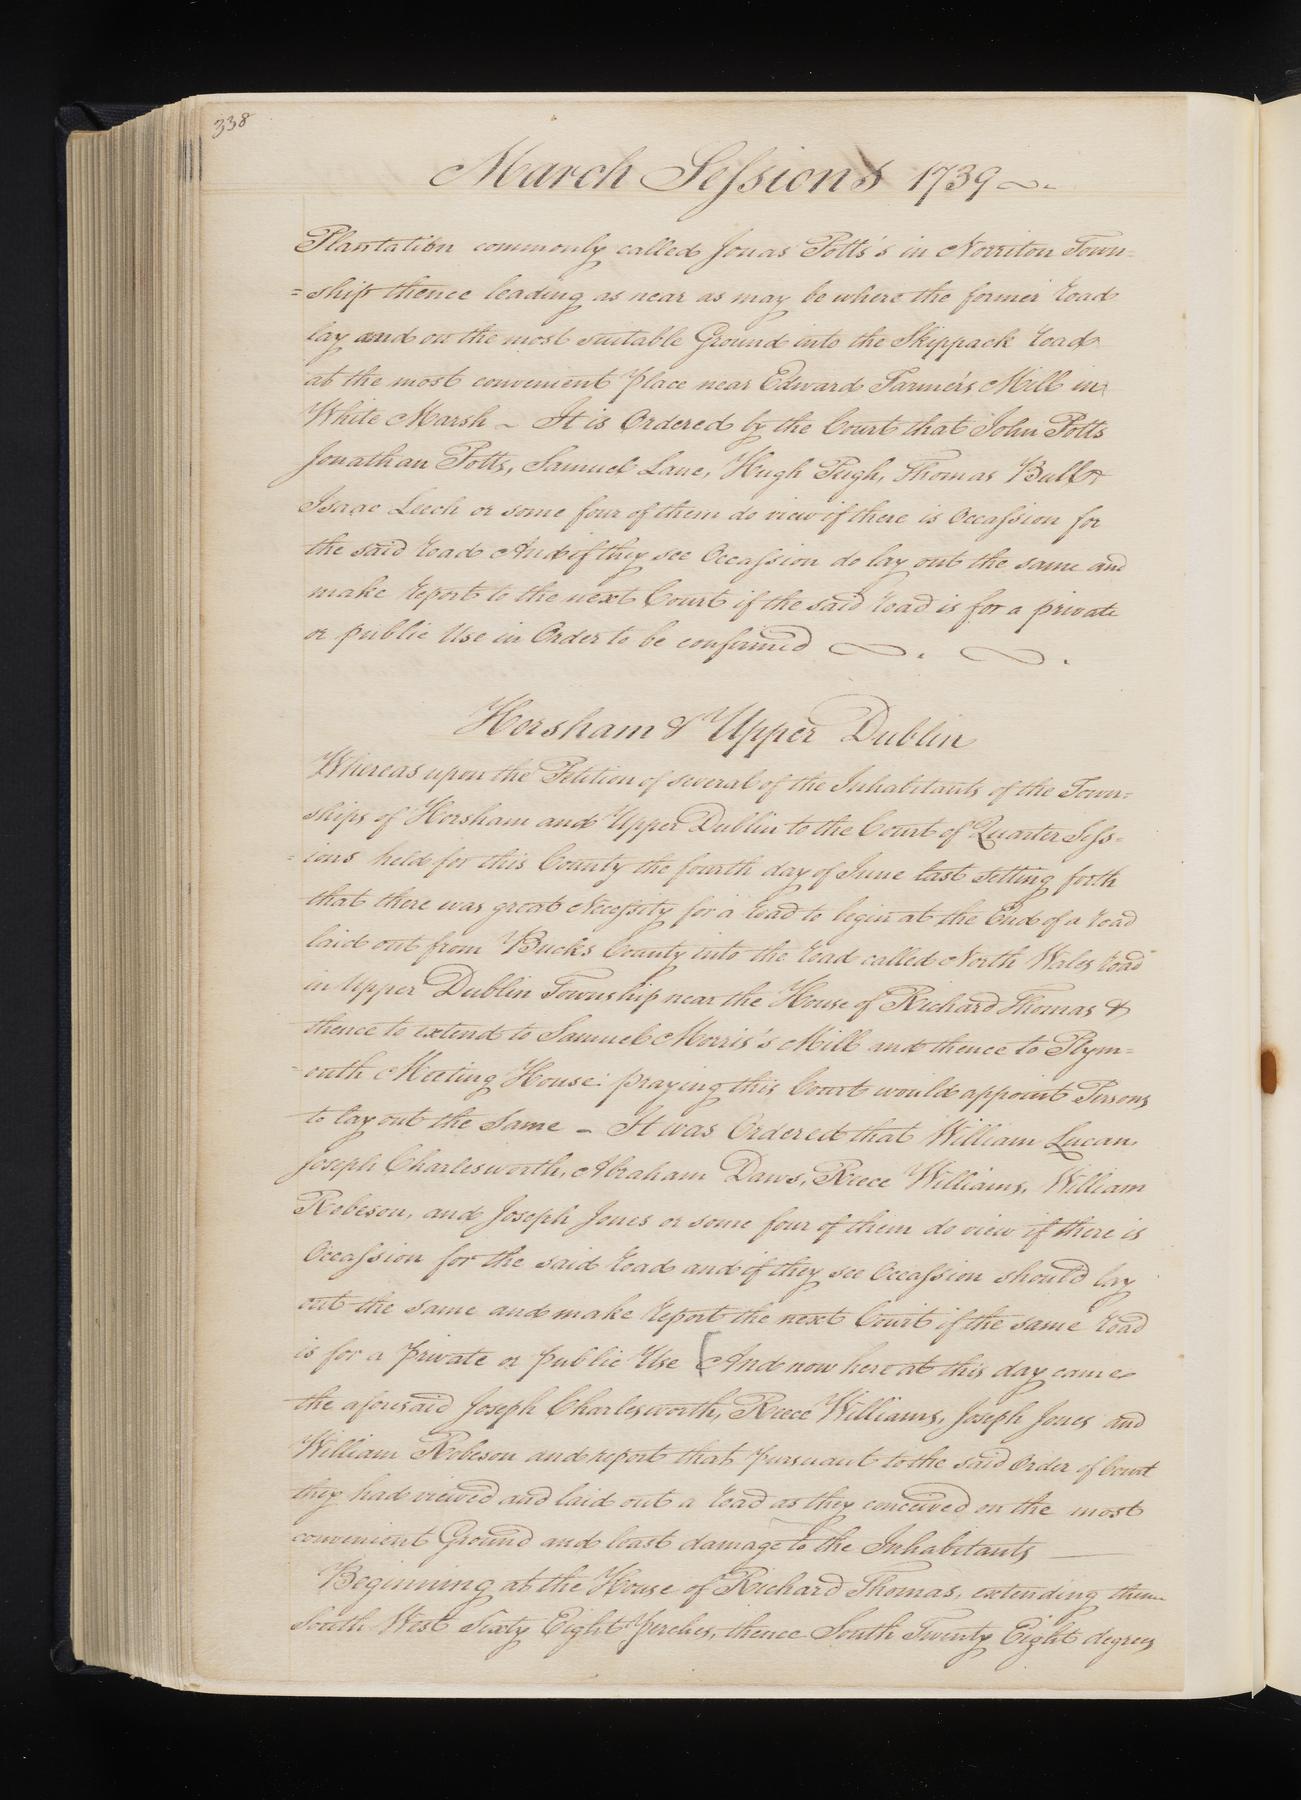 338
March Sessions 1739
Plantation commonly called Jonas Potts's in Norriton Town=
=ship thence leading as near as may be where the former Road
lay and on the most suitable Ground into the Skippack Road
at the most convenient place near Edward Farmer's Mill in
White Marsh ~ It is Ordered by the Court that John Potts
Jonathan Potts, Samuel Lane, Hugh Pugh, Thomas Bull &
Isaac Leech or some four of them do view if there is Occassion for
the said Road And if they see Occassion do lay out the same and
make Report to the next Court if the said Road is for a private
or public Use in Order to be confirmed
Horsham & Upper Dublin
Whereas upon the Petition of several of the Inhabitants of the Town=
ships of Horsham and Upper Dublin to the Court of Quarter Sess=
=ions held for this County the fourth day of June last setting forth
that there was great Necessity for a Road to begin at the End of a Road
laid out from Bucks County into the Road called North Wales Road
in Upper Dublin Township near the House of Richard Thomas &
thence to extend to Samuel Morris's Mill and thence to Plym=
=outh Meeting House: praying this Court would appoint Persons
to lay out the Same ~ It was Ordered that William Lucan,
Joseph Charlesworth, Abraham Daws, Reece Williams, William
Robeson, and Joseph Jones or some four of them do view if there is
Occassion for the said Road and if they see Occassion should lay
out the same and make Report the next Court if the same Road
is for a Private or public Use [And now here at this day came
the aforesaid Joseph Charlesworth, Reece Williams, Joseph Jones and
William Robeson and report that pursuant to the said Order of Court
they had viewed and laid out a Road as they conceived on the most
convenient Ground and least damage to the Inhabitants
Beginning at the House of Richard Thomas, extending thence
South West Sixty Eight Perches, thence South Twenty Eight degrees